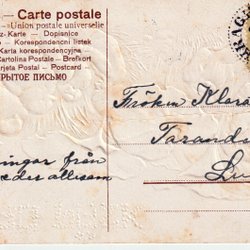 – Carte postale –
– Union postale universelle
z-Karte — Dopisnice
o — Korespondenční listek
– Karta korespondencyjna –
Cartolina Postale — Brefkort
Tarjeta Postal — Postcard
КРЫТОЕ ПИСЬМО
Fröken Klara
Farands
Lu
ningar från
eder allesam